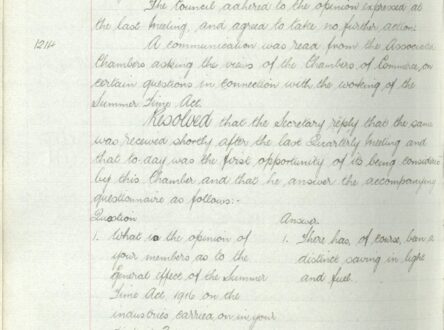 The Council adhered to the opinion expressed at
the last meeting, and agreed to take no further action.
1214 A communication was read from the Associated
Chambers asking the views of the Chambers of Commerce, on
certain questions in connection with the working of the
Summer Time Act.
Resolved that the Secretary reply that the same
was received shortly after the last Quarterly Meeting and
that to-day was the first opportunity of its being considered
by this Chamber and that he answer the accompanying
questionnaire as follows:-
Question Answer
1. What is the opinion of 1. There has, of course, been a
your members as to the distinct saving in light
general effect of the Summer and fuel.
Time Act, 1916 on the
industries carried on in your